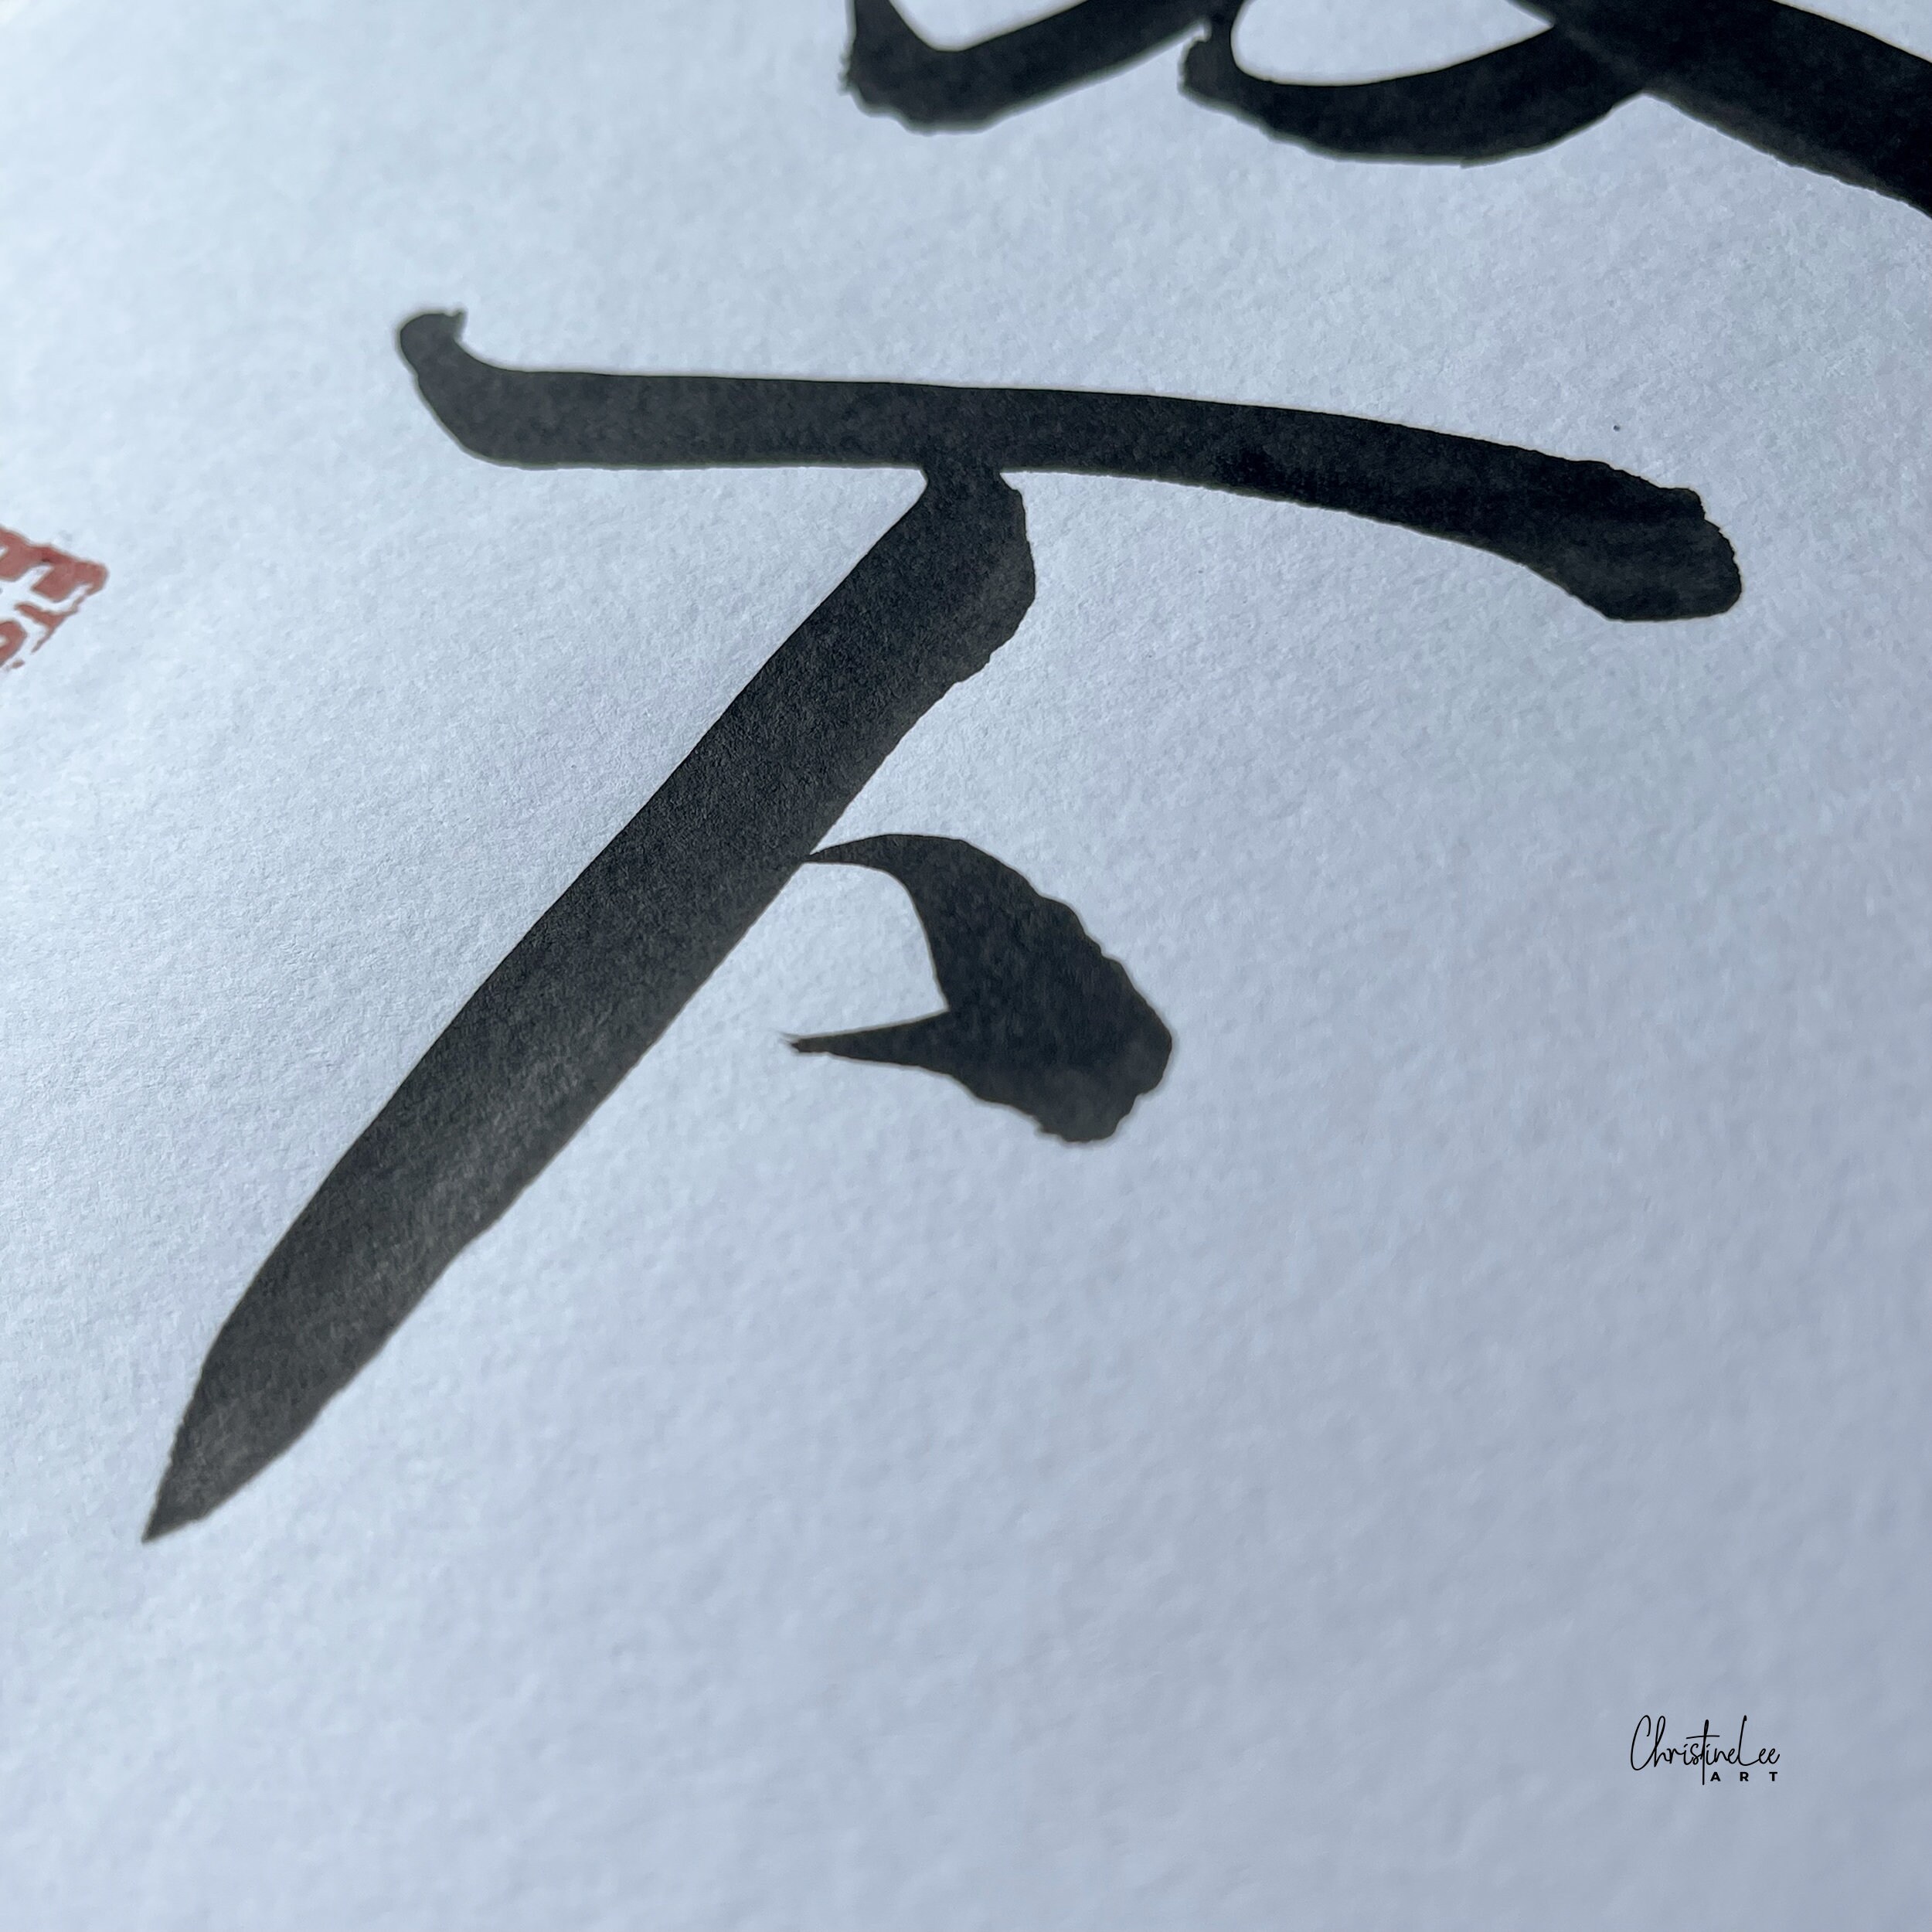 下
ChristineLee
ART